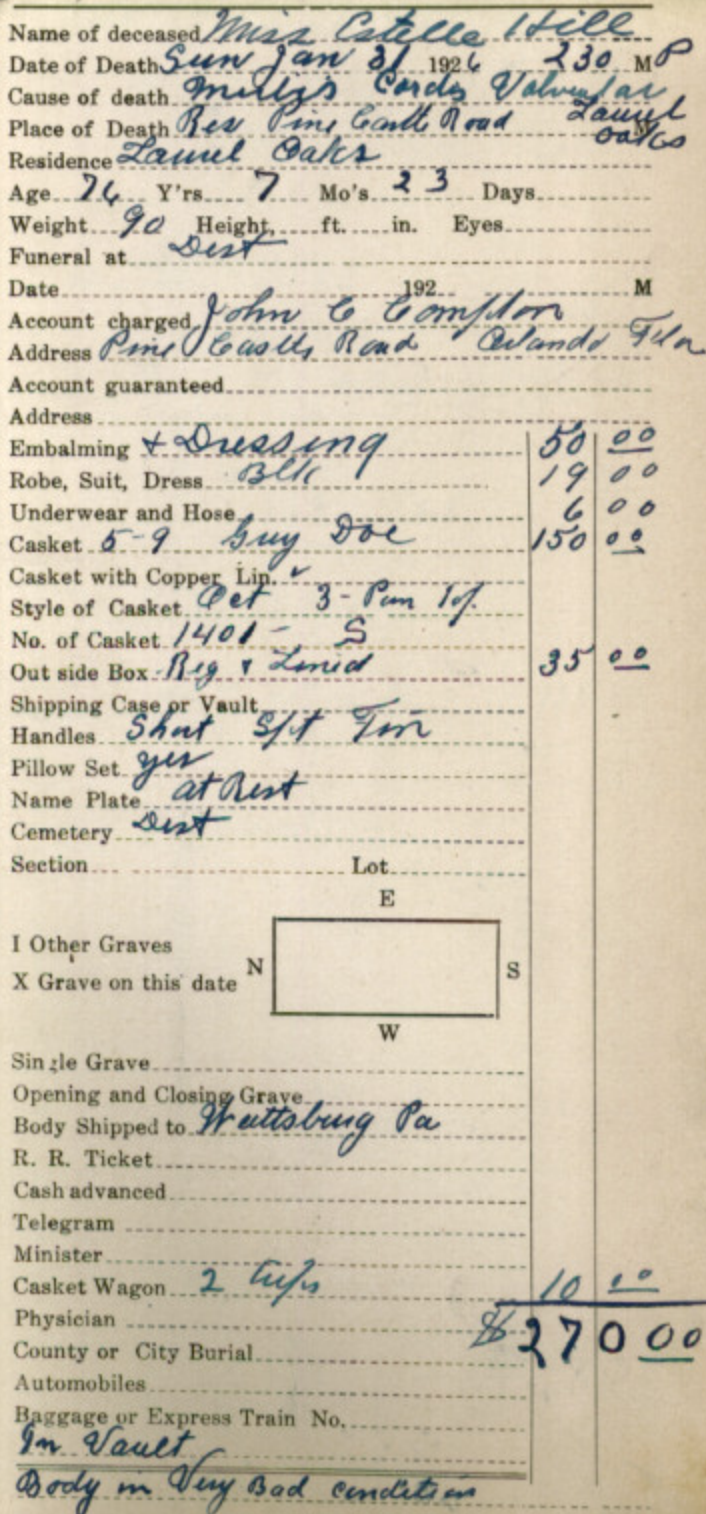 Name of deceased Miss Estelle Hill
Date of Death Sun Jan 31 1926 230 M P
Cause of death Cordis Valvular
Place of Death Res Pine Castle Road Laurel Oaks
Residence Laurel Oaks
Age 76 Y'rs 7 Mo's 23 Days
Weight 90 Height, ft. in. Eyes
Funeral at Dest
Date 192 M
Account charged John C Compton
Address Pine Castle Road Orlando Fla
Account guaranteed
Address
Embalming + Dressing 50 00
Robe, Suit, Dress Blk 19 00
Underwear and Hose 6 00
Casket 5-9 Guy Doe 150 00
Casket with Copper Lin. ✓
Style of Casket Oct 3-Pan Top
No. of Casket 1401 - S
Out side Box Reg + Lined 35 00
Shipping Case or Vault
Handles Short
Pillow Set yes
Name Plate at Rest
Cemetery Dest
Section Lot
E
I Other Graves
N S
X Grave on this date
W
Single Grave
Opening and Closing Grave
Body Shipped to Wattsburg Pa
R. R. Ticket
Cash advanced
Telegram
Minister
Casket Wagon 2 Trips 10 00
Physician
$270 00
County or City Burial
Automobiles
Baggage or Express Train No.
In Vault
Body in Very Bad condition